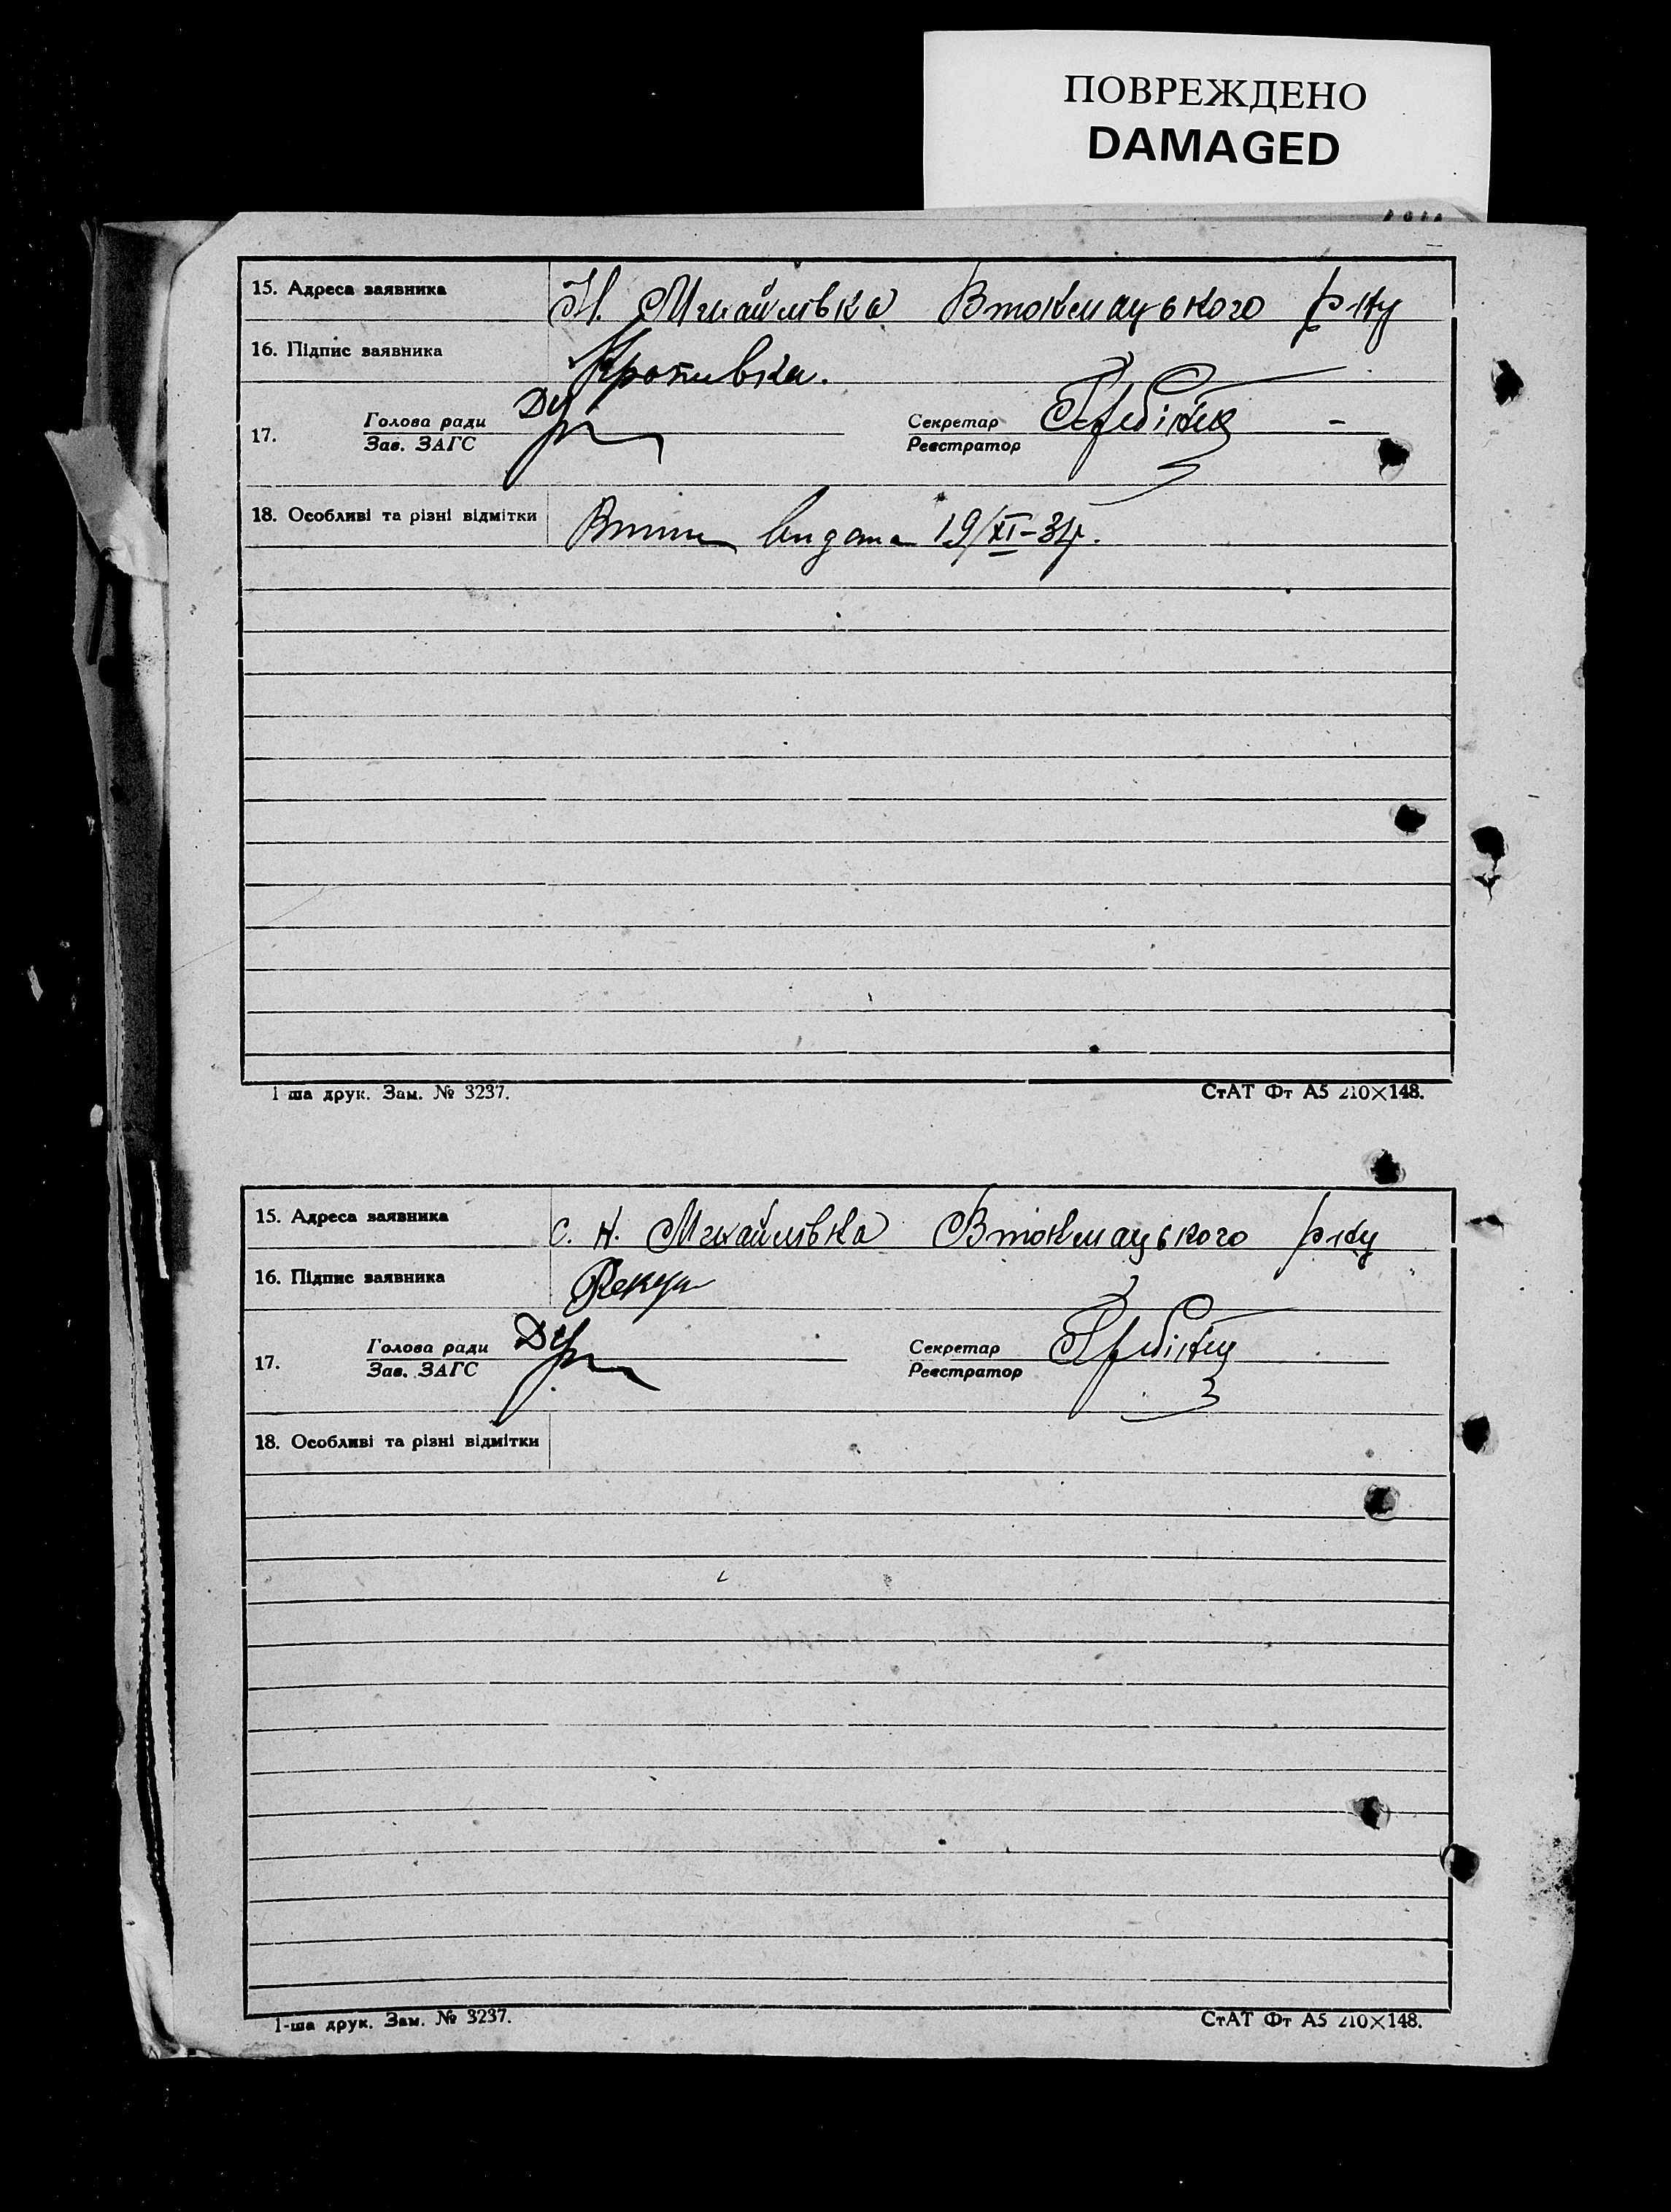 ПОВРЕЖДЕНО
DAMAGED
15. Адреса заявника Н. Михайлівка Втокмацького р-ну
16. Підпис заявника Кропивка.
Голова ради Секретар
17.
Зав. ЗАГС Реєстратор
18. Особливі та різні відмітки видана 19/XI-34р.
1-ша друк. Зам. № 3237. СтАТ Фт А5 210×148.
15. Адреса заявника с. Н. Михайлівка Втокмацького р-ну
16. Підпис заявника
Голова ради Секретар
17.
Зав. ЗАГС Реєстратор
18. Особливі та різні відмітки
1-ша друк. Зам. № 3237. СтАТ Фт А5 210×148.